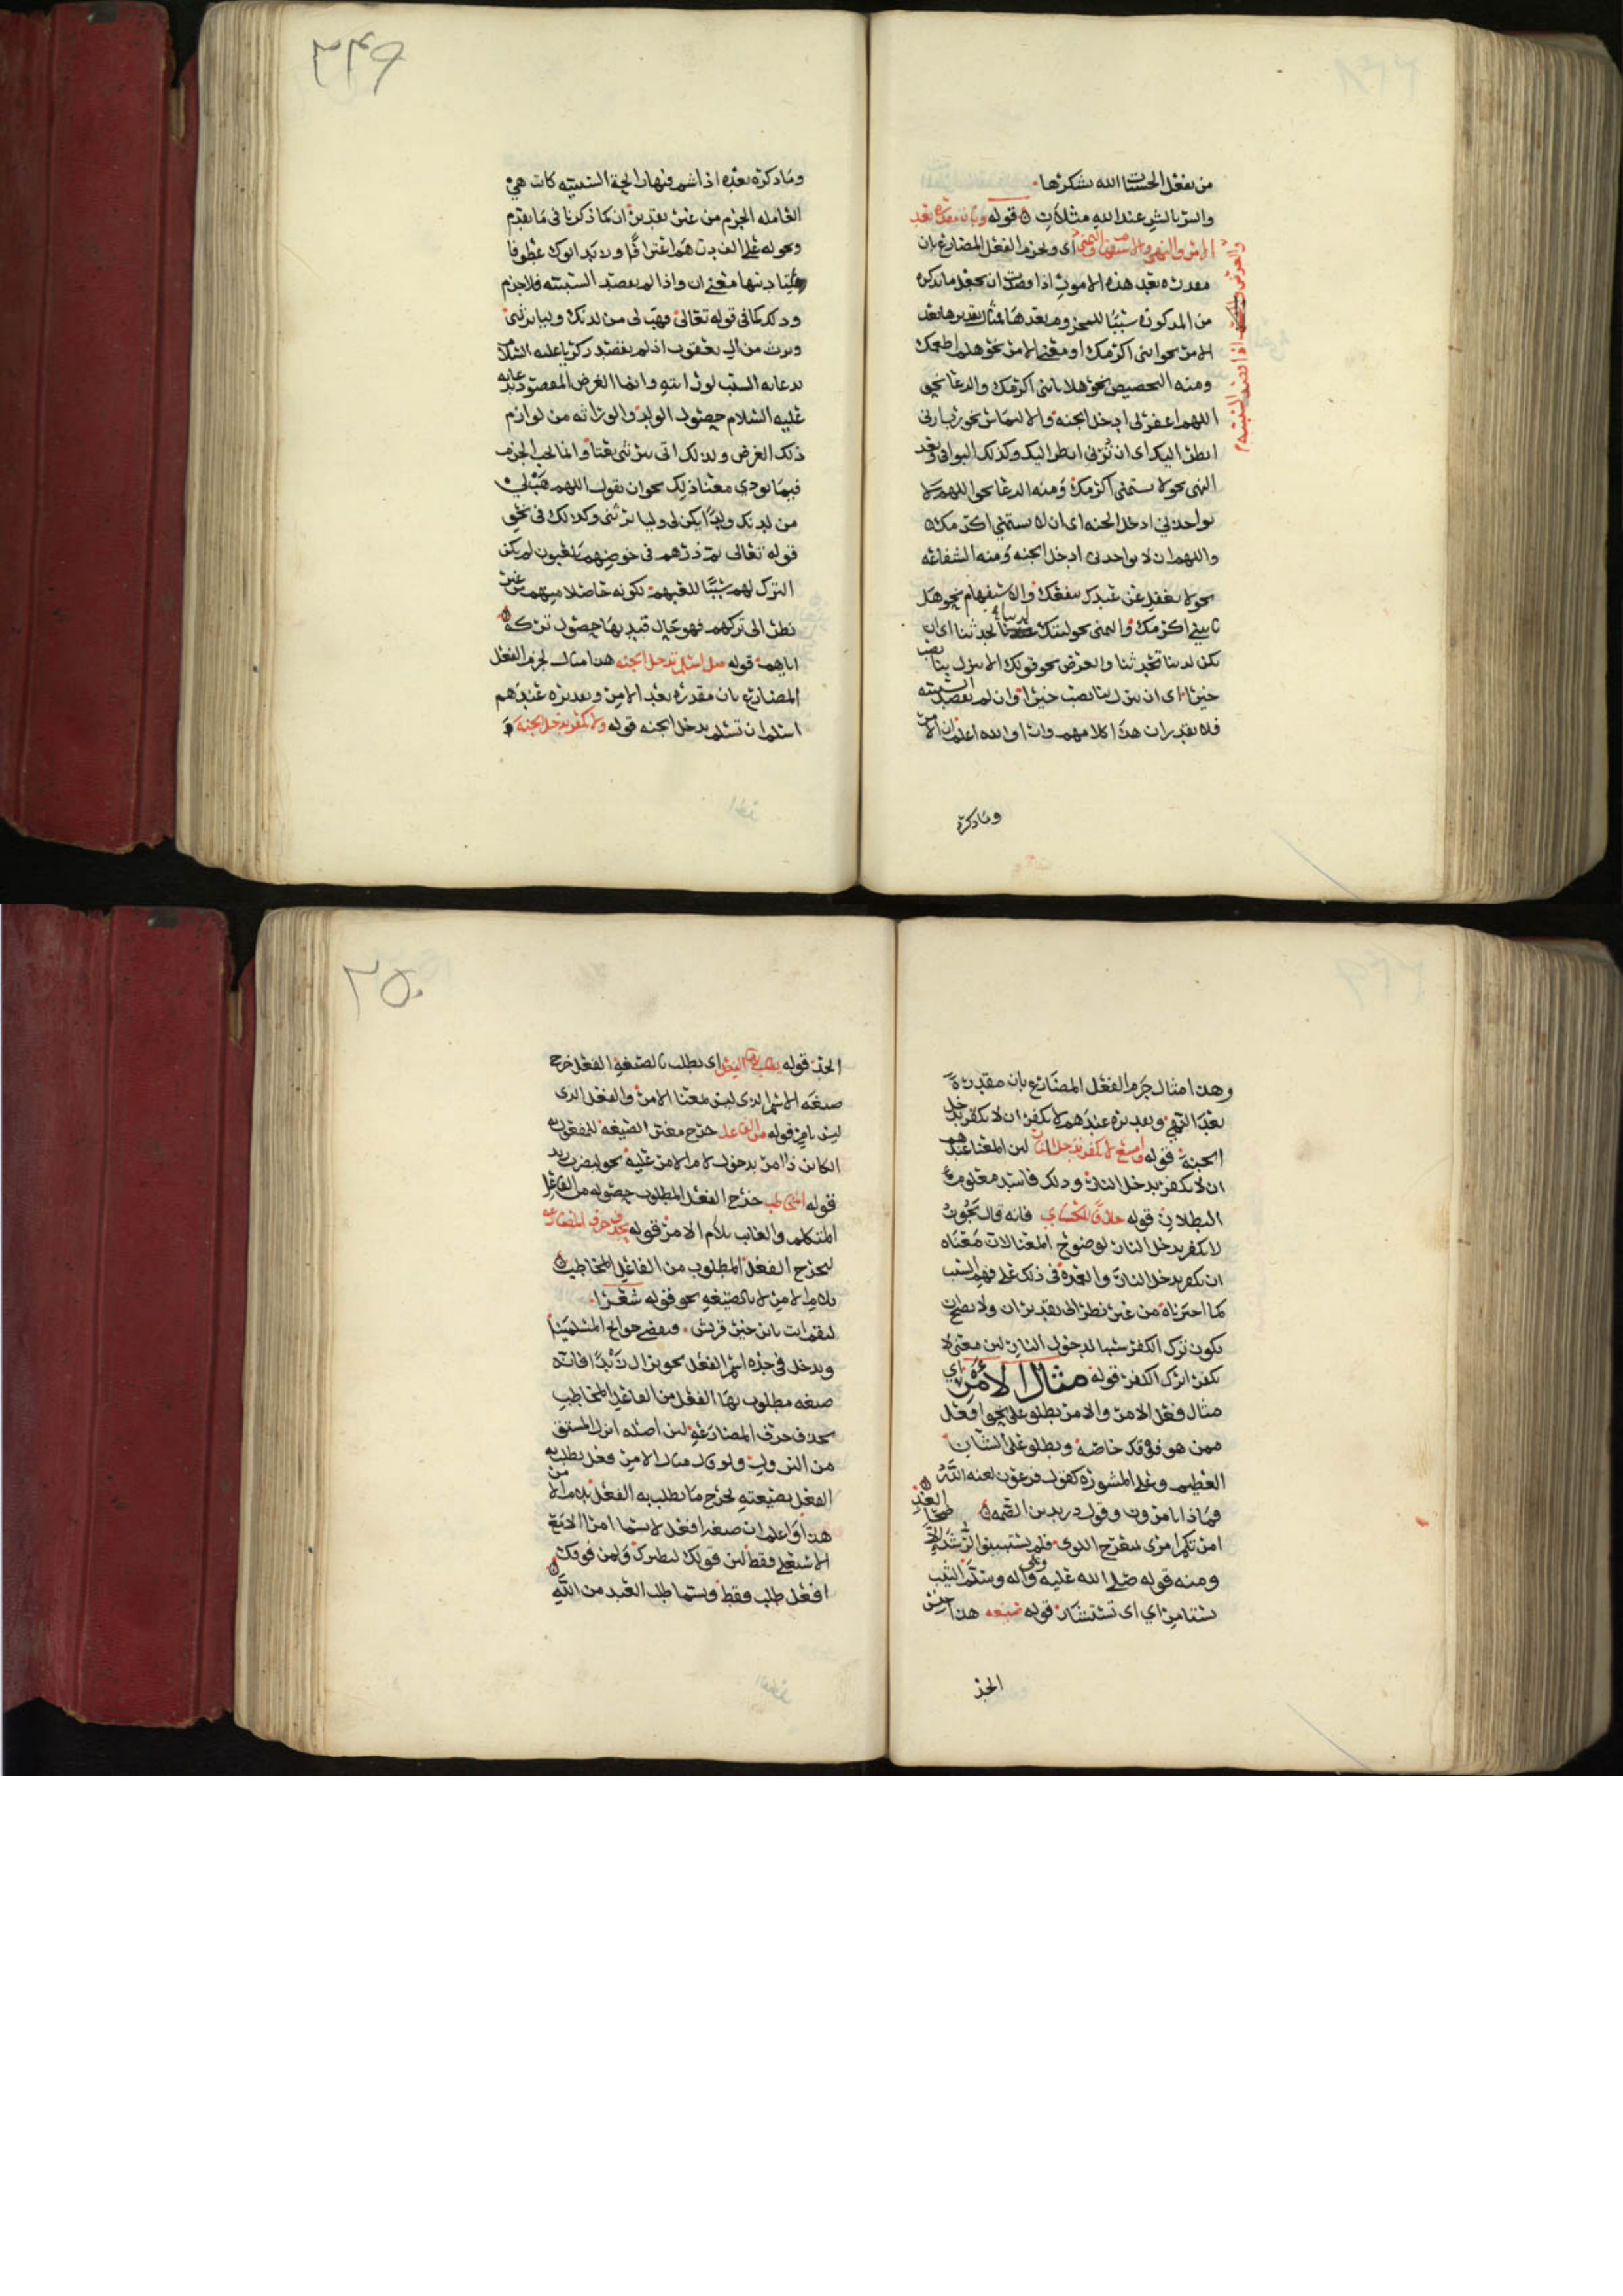 من يفعل الحسنات الله يشكرها
والشر بالشر عند الله مثلان قوله وبان مقدرة بعد
الامر والنهي والاستفهام والتمني اي ويجزم الفعل المضارع بان
والعرض اذا قصد السببية
مقدرة بعد هذه الامور اذا قصدت ان تجعل ما تذكره
من المذكورة سببا وما بعدها مثال تقديرها بعد
الامر نحو ايتني اكرمك او معنى الامر نحو هلم اطعمك
ومنه التحضيض نحو هلا تاتني اكرمك والدعا نحو
اللهم اغفر لي ادخل الجنة والالتماس نحو زيارني
انظر اليك اي ان ترني انظر اليك وكذلك البواقي وبعد
النهي نحو لا تشتمني اكرمك ومنه الدعا نحو اللهم لا
تواخذني ادخل الجنة اي ان لا تشتمني اكرمك
واللهم ان لا تواخذني ادخل الجنة ومنه الشفاعة
نحو لا تغفل عن عبدك ينفعك والاستفهام نحو هل
تاتيني اكرمك والتمني نحو ليتك لدينا تحدثنا اي ان
تكن لدينا تحدثنا والعرض نحو قولك الا تنزل بنا تصب
خيرا اي ان تنزل بنا تصب خيرا وان لم تقصد السببية
فلا تقدر ان هذا كلامهم وانا والله اعلم ان الامر
وما ذكره
٢٤٩
وما ذكره بعده اذا شم منها رائحة السببية كانت هي
العاملة الجزم من غير تقدير ان كما ذكرنا في ما تقدم
ونحوه
معنى ان واذا لم تقصد السببية فلا جزم
وذلك كما في قوله تعالى فهب لي من لدنك وليا يرثني
ويرث من ال يعقوب اذ لم يقصد زكريا عليه السلام
بدعائه السبب لوراثته وانما الغرض المقصود بدعائه
عليه السلام حصول الولد والوراثة من لوازم
ذلك الغرض ولذلك اتى يرثني نعتا وانما يجب الجزم
فيما يودي معنا ذلك نحو ان تقول اللهم هب لي
من لدنك ولدا يكن لي وليا يرثني وكذلك في نحو
قوله تعالى ثم ذرهم في خوضهم يلعبون لم يكن
الترك لهم سببا للعبهم لكونه حاصلا منهم من غير
نظر الى تركهم فهو حال قيد بها حصول تركه
اياهم قوله مثل اسلم تدخل الجنه هذا مثال لجزم الفعل
المضارع بان مقدرة بعد الامر وتقديره عندهم
اسلم ان تسلم تدخل الجنه قوله ولا تكفر تدخل الجنة و
وهذا مثال جزم الفعل المضارع بان مقدرة
بعد النهي وتقديره عندهم لا تكفر ان لا تكفر تدخل
الجنة قوله وامتنع لا تكفر تدخل النار لان المعنا عندهم
ان لا تكفر تدخل النار وذلك فاسد معلوم
البطلان قوله خلافا للكسائي فانه قال يجوز
لا تكفر تدخل النار لوضوح المعنا لان معناه
ان تكفر تدخل النار والعمدة في ذلك على فهم السبب
كما اخترناه من غير نظر الى تقدير ان ولا يصح ان
يكون ترك الكفر سببا لدخول النار لان معنى لا
تكفر اترك الكفر قوله مثال الامر اي
مثال فعل الامر والامر يطلق على نحو افعل
ممن هو فوقك خاصة ويطلق على الشان
العظيم وعلى المشورة كقول فرعون لعنه الله
فماذا تامرون وقول دريد بن الصمة
امرتكم امري بمنعرج اللوى فلم يستبينوا الرشد الا ضحى الغد
ومنه قوله صلى الله عليه وعلى اله وسلم الثيب
تستامر اي اي تستشار قوله صيغه هذا جنس
الحد
٢٥٠
الحد قوله يطلب بها الفعل اي يطلب بالصيغة الفعل خرج
صيغة الاسم الذي ليس بمعنا الامر والفعل الذي
ليس بامر قوله من الفاعل خرج مغير الصيغه للمفعول
الكائن ذا امر بدخول لام الامر عليه نحو ليضرب زيد
قوله المخاطب خرج الفعل المطلوب حصوله من الفاعل
المتكلم والغائب بلام الامر قوله بحذف حرف المضارعة
ليخرج الفعل المطلوب من الفاعل المخاطب
بلام الامر لا بالصيغة نحو قوله شعرا
لتقم انت يا ابن خير قريش فتقضي حوائج المسلمينا
ويدخل في حده اسم الفعل نحو نزال زيدا فانه
صيغه مطلوب بها الفعل من الفاعل المخاطب
بحذف حرف المضارعة لان اصله انزل المشتق
من النزول ولو قال مثال الامر فعل يطلب به
الفعل بصيغته لخرج ما يطلب به الفعل بلام الامر
هذا واعلم ان صيغة افعل لا يسما امرا الا مع
الاستعلى فقط لان قولك لنظيرك ولمن فوقك
افعل طلب فقط ويسما طلب العبد من الله